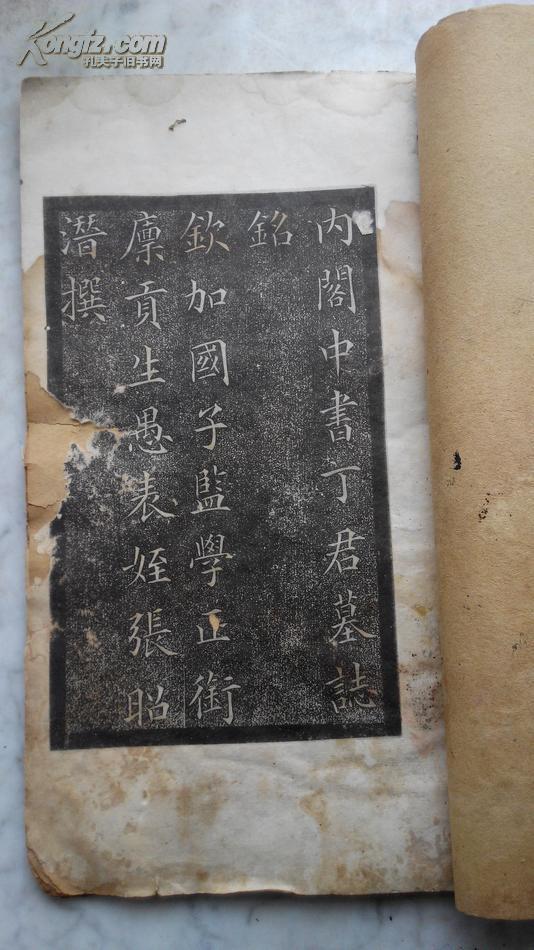 内閣中書丁君墓誌
銘
欽加國子監學正銜
廩貢生愚表姪張昭
潛撰
Kongfz.com
孔夫子旧书网